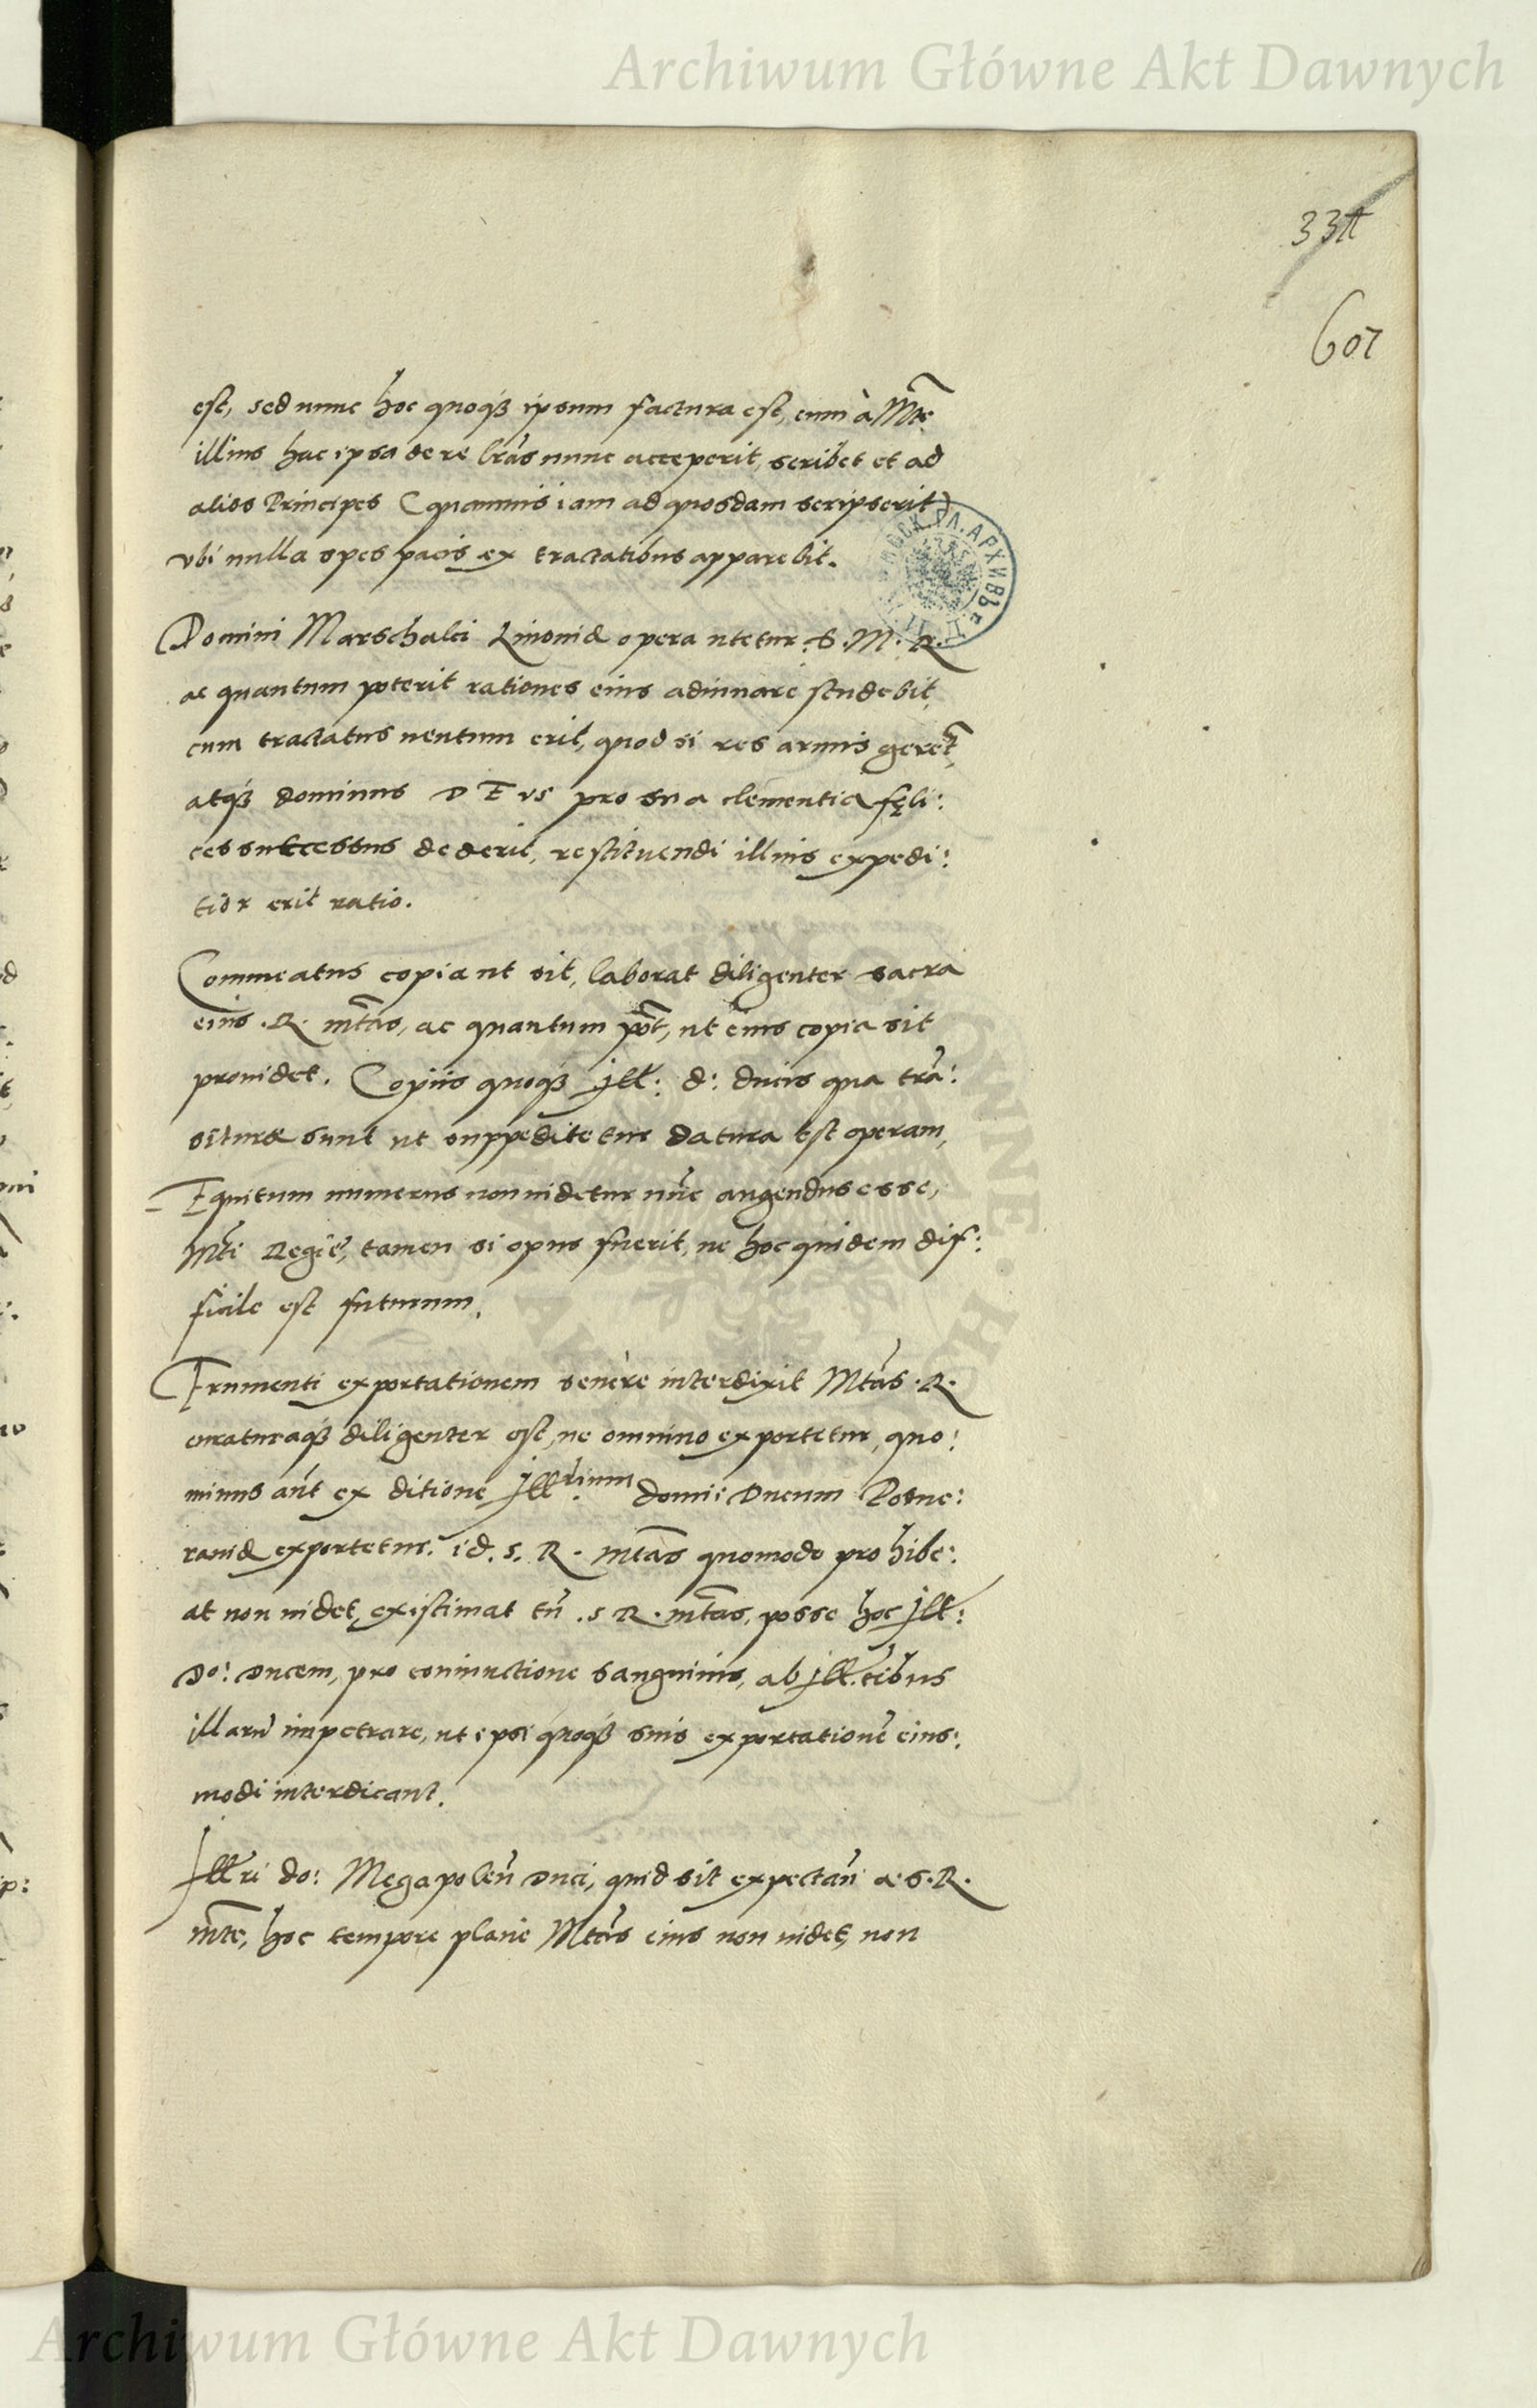 Archiwum Główne Akt Dawnych
334
607
est, sed nunc hoc quoq3 ipsum factura est, cum à Mte
illius hac ipsa de re lrãs nunc acceperit, scribet et ad
alios Principes (quamuis iam ad quosdam scripserit)
vbi nulla spes pacis ex tractatibus apparebit.
Domini Marschalci Liuoniæ opera utetur S. M. R.
ac quantum poterit rationes eius adiuuare studebit,
cum tractatus uentum erit, quod si res armis geret̃,
atq3 dominus DEVS pro sua clementia fęli:
ces successus dederit, restituendi illius expedi:
tior erit ratio.
Commeatus copia ut sit, laborat diligenter sacra
eius .R. mtãs, ac quantum põt, ut eius copia sit
prouidet. Copiis quoq3 ill: d: ducis qua trã:
situræ sunt ut suppeditetur datura est operam,
Equitum numerus non uidetur nũc augendus esse,
Mti Regię, tamen si opus fuerit, ne hoc quidem dif:
ficile est futurum.
Frumenti exportationem seuère interdixit Mtãs .R.
curaturaq3 diligenter est, ne omnino exportetur, quo:
minus aũt ex ditione Ill:rium domi: Ducum Pome:
raniæ exportetur. id. S. R. mtãs quomodo prohibe:
at non uidet, existimat tñ .S R. mtãs, posse hoc ill:
Do: Ducem, pro coniunctione sanguinis, ab ill.tibus
illarũ impetrare, ut ipsi quoq3 suis exportationẽ eius:
modi interdicant.
Illri do: Megapoleñ Duci, quid sit expectañ a S. R.
mte, hoc tempore planè Mtãs eius non uidet, non
Archiwum Główne Akt Dawnych